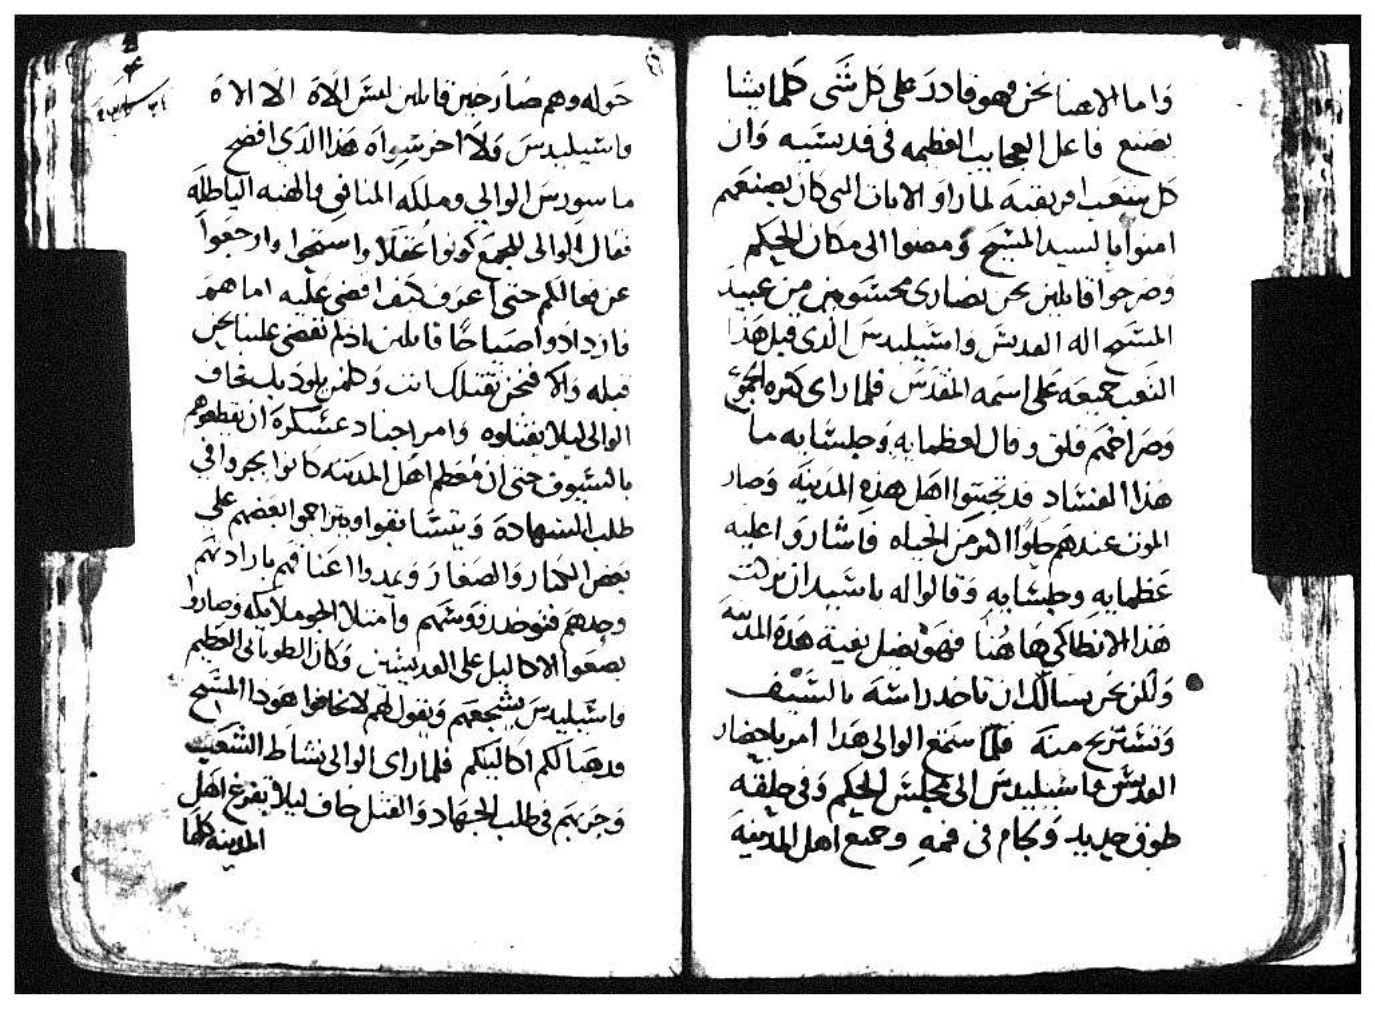 واما الاهنا نحن فهو قادر على كل شى كلما يشا
يصنع فاعل العجايب العظيمه فى قديسيه وان
كل شعب افريقيه لما راو الايات التى كان يصنعهم
امنوا بالسيد المسيح ومضوا الى مكان الحكم
وصرخوا قايلين نحن نصارى محسوبين من عبيد
المسيح اله القديس واسيليدس الذى قبل هذا
التعب جميعه على اسمه المقدس فلما راى كثره الجموع
وصراخهم قلق وقال لعظمايه وجلسايه ما
هذا الفساد قد نجسوا اهل هذه المدينه وصار
الموت عندهم حلوا اكتر من الحياه فاشاروا عليه
عظمايه وجلسايه وقالوا له يا سيد ان تركت
هذا الانطاكى هاهنا فهو يضل بقية هذه المدينه
ولكن نحن نسالك ان تاخد راسه بالسيف
ونستريح منه فلما سمع الوالى هذا امر باحضار
القديس واسيليدس الى مجلس الحكم وفى حلقه
طوق حديد ولجام فى فمه وجميع اهل المدينه
حوله وهم صارخين قايلين ليس الاه الا الاه
واسيليدس ولا اخر سواه هذا الذى افضح
ماسورس الوالي وملكه المنافق والهته الباطله
فقال الوالى للجمع كونوا عقلا واستحوا وارجعوا
عن فعالكم حتى اعرف كيف اقضى عليه اما هم
فازدادوا صياحا قايلين اذ لم تقضى علينا نحن
قبله والا فنحن نقتلك انت وكلمن يلوذ بك فخاف
الوالى ليلا يقتلوه وامر اجناد عسكره ان يقطعوهم
بالسيوف حتى ان معظم اهل المدينه كانوا يجروا في
طلب الشهادة ويتسابقوا ويتزاحموا بعضهم على
بعض الكبار والصغار ويمدوا اعناقهم بارادتهم
وحدهم فتوخد رووسهم وامتلا الجو ملايكه وصاروا
يضعوا الاكاليل على القديسين وكان الطوبانى العظيم
واسيليدس يشجعهم ويقول لهم لا تخافوا هوذا المسيح
قد هيا لكم اكاليلكم فلما راى الوالى نشاط الشعب
وحربهم فى طلب الجهاد والقتل خاف ليلا يفرغ اهل
المدينه كلها